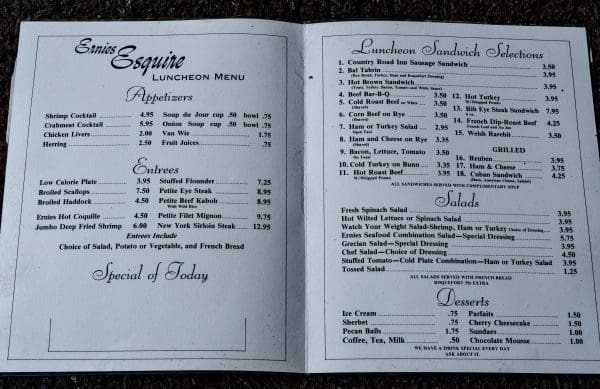 Ernies
Esquire
LUNCHEON MENU
Appetizers
Shrimp Cocktail 4.95
Crabmeat Cocktail 5.95
Chicken Livers 2.00
Herring 2.50
Soup du Jour cup .50 bowl .75
Onion Soup cup .50 bowl .75
Van Wie 1.75
Fruit Juices .75
Entrees
Low Calorie Plate 3.95
Broiled Scallops 7.50
Broiled Haddock 4.50
Ernies Hot Coquille 4.50
Jumbo Deep Fried Shrimp 6.00
Stuffed Flounder 7.25
Petite Eye Steak 8.95
Petite Beef Kabob 8.95
With Wild Rice
Petite Filet Mignon 9.75
New York Sirloin Steak 12.95
Entrees Include
Choice of Salad, Potato or Vegetable, and French Bread
Special of Today
Luncheon Sandwich Selections
1. Country Road Inn Sausage Sandwich 3.50
2. Bal Tabrin 3.95
(Rye Bread, Turkey, Ham and Roquefort Dressing)
3. Hot Brown Sandwich 3.95
(Toast, Turkey, Bacon, Tomato and White Sauce)
4. Beef Bar-B-Q 3.50
5. Cold Roast Beef on White 3.50
(Shaved)
6. Corn Beef on Rye 3.50
(Shaved)
7. Ham or Turkey Salad 2.95
Open Face
8. Ham and Cheese on Rye 3.35
(Shaved)
9. Bacon, Lettuce, Tomato 3.50
On Toast
10. Cold Turkey on Bunn 3.35
11. Hot Roast Beef 3.95
W/Whipped Potatoes
12. Hot Turkey 3.95
W/Whipped Potatoes
13. Rib Eye Steak Sandwich 7.95
14. French Dip-Roast Beef 4.25
French Loaf and Au Jus
15. Welsh Rarebit 3.50
GRILLED
16. Reuben 3.95
17. Ham & Cheese 3.75
18. Cuban Sandwich 4.25
(Ham, American Cheese, Salami)
ALL SANDWICHES SERVED WITH COMPLIMENTARY SOUP
Salads
Fresh Spinach Salad 3.95
Hot Wilted Lettuce or Spinach Salad 3.95
Watch Your Weight Salad-Shrimp, Ham or Turkey Choice of Dressing 3.95
Ernies Seafood Combination Salad—Special Dressing 5.75
Grecian Salad—Special Dressing 3.95
Chef Salad—Choice of Dressing 4.50
Stuffed Tomato—Cold Plate Combination—Ham or Turkey Salad 3.95
Tossed Salad 1.25
ALL SALADS SERVED WITH FRENCH BREAD
ROQUEFORT 35¢ EXTRA
Desserts
Ice Cream .75
Sherbet .75
Pecan Balls 1.75
Coffee, Tea, Milk .50
Parfaits 1.50
Cherry Cheesecake 1.50
Sundaes 1.00
Chocolate Mousse 1.00
WE HAVE A DRINK SPECIAL EVERY DAY
ASK ABOUT IT.